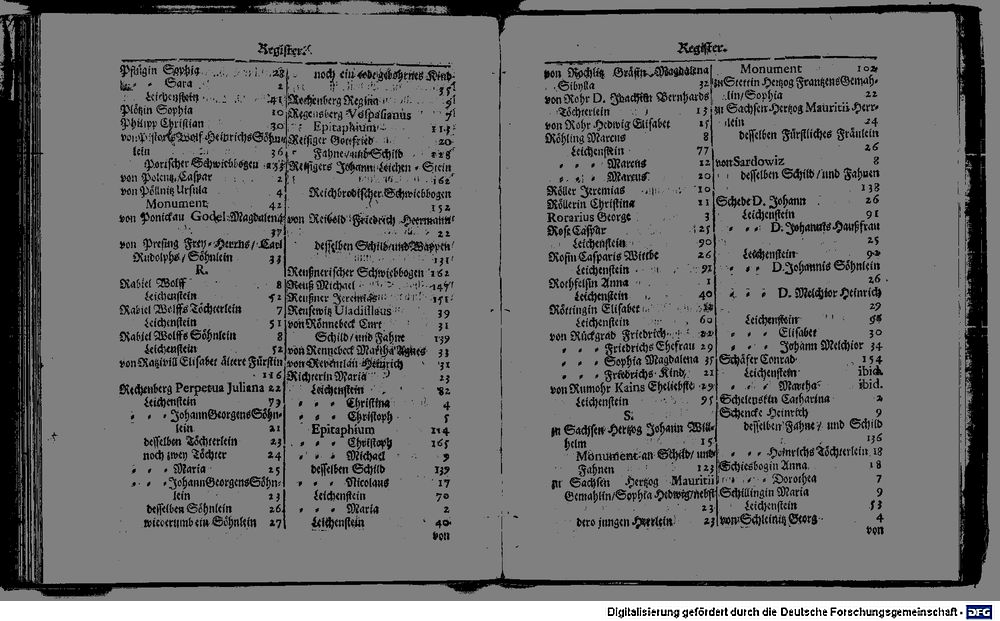 Register.
Pflügin Sophia 28
Sara 2
Leichenstein 41
Plötzin Sophia 10
Philipp Christian 30
von Pistoris Wolf Heinrichs Söhn-
lein 36
Porischer Schwiebbogen 153
von Polentz, Caspar 2
von Pöllnitz Ursula 4
Monument 42
von Ponickau Godel Magdalena
37
von Presing Frey-Herrns/ Carl
Rudolphs/ Söhnlein 33
R.
Rabiel Wolff 8
Leichenstein 52
Rabiel Wolffs Töchterlein 7
Leichenstein 51
Rabiel Wolffs Söhnlein 8
Leichenstein 52
von Razivill Elisabet ältere Fürstin
116
Rechenberg Perpetua Juliana 22
Leichenstein 73
Johann Georgens Söhn-
lein 21
desselben Töchterlein 23
noch zwey Töchter 24
Maria 25
Johann Georgens Söhn-
lein 23
desselben Söhnlein 26
wiederumb ein Söhnlein 27
noch ein todegebohrnes Kind
35
Rechenberg Regina 9
Regensberg Volpalianus 7
Epitaphium 113
Reisiger Gottfried 20
Fahne/und Schild 128
Reisigers Johann Leichen-Stein
162
Reichbrodischer Schwiebbogen
152
von Reibold Friedrich Heermann
22
desselben Schild/und Wappen/
131
Reußnerischer Schwiebbogen 162
Reuß Michael 147
Reußner Jeremias 151
Reusewitz Uladislaus 39
von Rönnebeck Curt 31
Schild/und Fahne 139
von Rennebeck Martha Agnes 33
von Reventlau Heinrich 31
Richterin Maria 23
Leichenstein 82
Christina 4
Christoph 5
Epitaphium 114
Christoph 165
Michael 9
desselben Schild 139
Nicolaus 17
Leichenstein 70
Maria 2
Leichenstein 40
von
Register.
von Rochlitz Gräfin Magdalena
Sibylla 32
von Rohr D. Joachim Bernhards
Töchterlein 13
von Rohr Hedwig Elisabet 15
Röhling Marcus 8
Leichenstein 77
Marcus 12
Marcus 20
Röller Jeremias 10
Röllerin Christina 11
Rorarius George 3
Rose Caspar 25
Leichenstein 90
Rosin Casparis Wittbe 26
Leichenstein 91
Rothfelsin Anna 1
Leichenstein 40
Röttingin Elisabet
Leichenstein 60
von Rückgrad Friedrich 22
Friedrichs Ehefrau 29
Sophia Magdalena 35
Friedrichs Kind 21
von Rumohr Kains Eheliebste 29
Leichenstein 95
S.
zu Sachsen Hertzog Johann Wil-
helm 15
Monument an Schild/ und
Fahnen 123
zu Sachsen Hertzog Mauritii
Gemahlin/Sophia Hedwig/nebst
23
dero jungen Herrlein 23
Monument 102
zu Stettin Hertzog Frantzens Gemah-
lin/Sophia 22
zu Sachsen-Hertzog Mauritii Herr-
lein 24
desselben Fürstliches Fräulein
26
von Sardowiz 8
desselben Schild/und Fahnen
138
Schede D. Johann 26
Leichenstein 91
D. Johannis Haußfrau
25
Leichenstein 92
D. Johannis Söhnlein
26
D. Melchior Heinrich
29
Leichenstein 98
Elisabet 30
Johann Melchior 34
Schäfer Conrad 154
Leichenstein ibid.
Martha ibid.
Schelenskin Catharina 2
Schencke Heinrich 9
desselben Fahne/ und Schild
136
Heinrichs Töchterlein 18
Schiesbogin Anna 18
Dorothea 7
Schillingin Maria 9
Leichenstein 53
von Schleinitz Georg 4
von
Digitalisierung gefördert durch die Deutsche Forschungsgemeinschaft - DFG